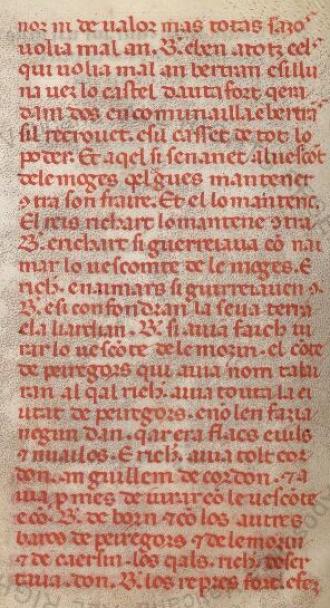 nor ni de ualor mas totas sazos
uolia mal an .B. e ben a totz cels
qui uolia mal an bertran e si llu
na uez lo castel dautafort qem
dam dos en comunailla ebertra
sil retrouet. esi casset de tot lo
poder. Et aqel si senanet al uescōt
delemoges qel gues mantener
ↄtra son fraire. Et el lo mantenc.
El reis richart lo mantenc ↄtra
.B. en richart si guerreiaua cō nai
mar lo uescomte de lemoges. E
rich. en aimars si guerreiauen ↄ.
.B. esi confondian la seua terra
e la li ardian. B. si auia faich iu
rar lo uescōte delemozin. el cōte
de peiregors qui auia nom talai
ran al qal rich. auia touta la ci
utat de peiregors. enō len fazia
negun dan. qar era flacs e uils
⁊ nuailos. E rich. auia tolt cor
don. an guillem de cordon. ⁊ a
uia pmes de iurar cō le uescōte
ecō .B. de born ⁊ cō los autres
baros de peiregors ⁊ de lemozin
⁊ de caersin. los qals. rich. deser
taua. don .B. los repres fort e fez